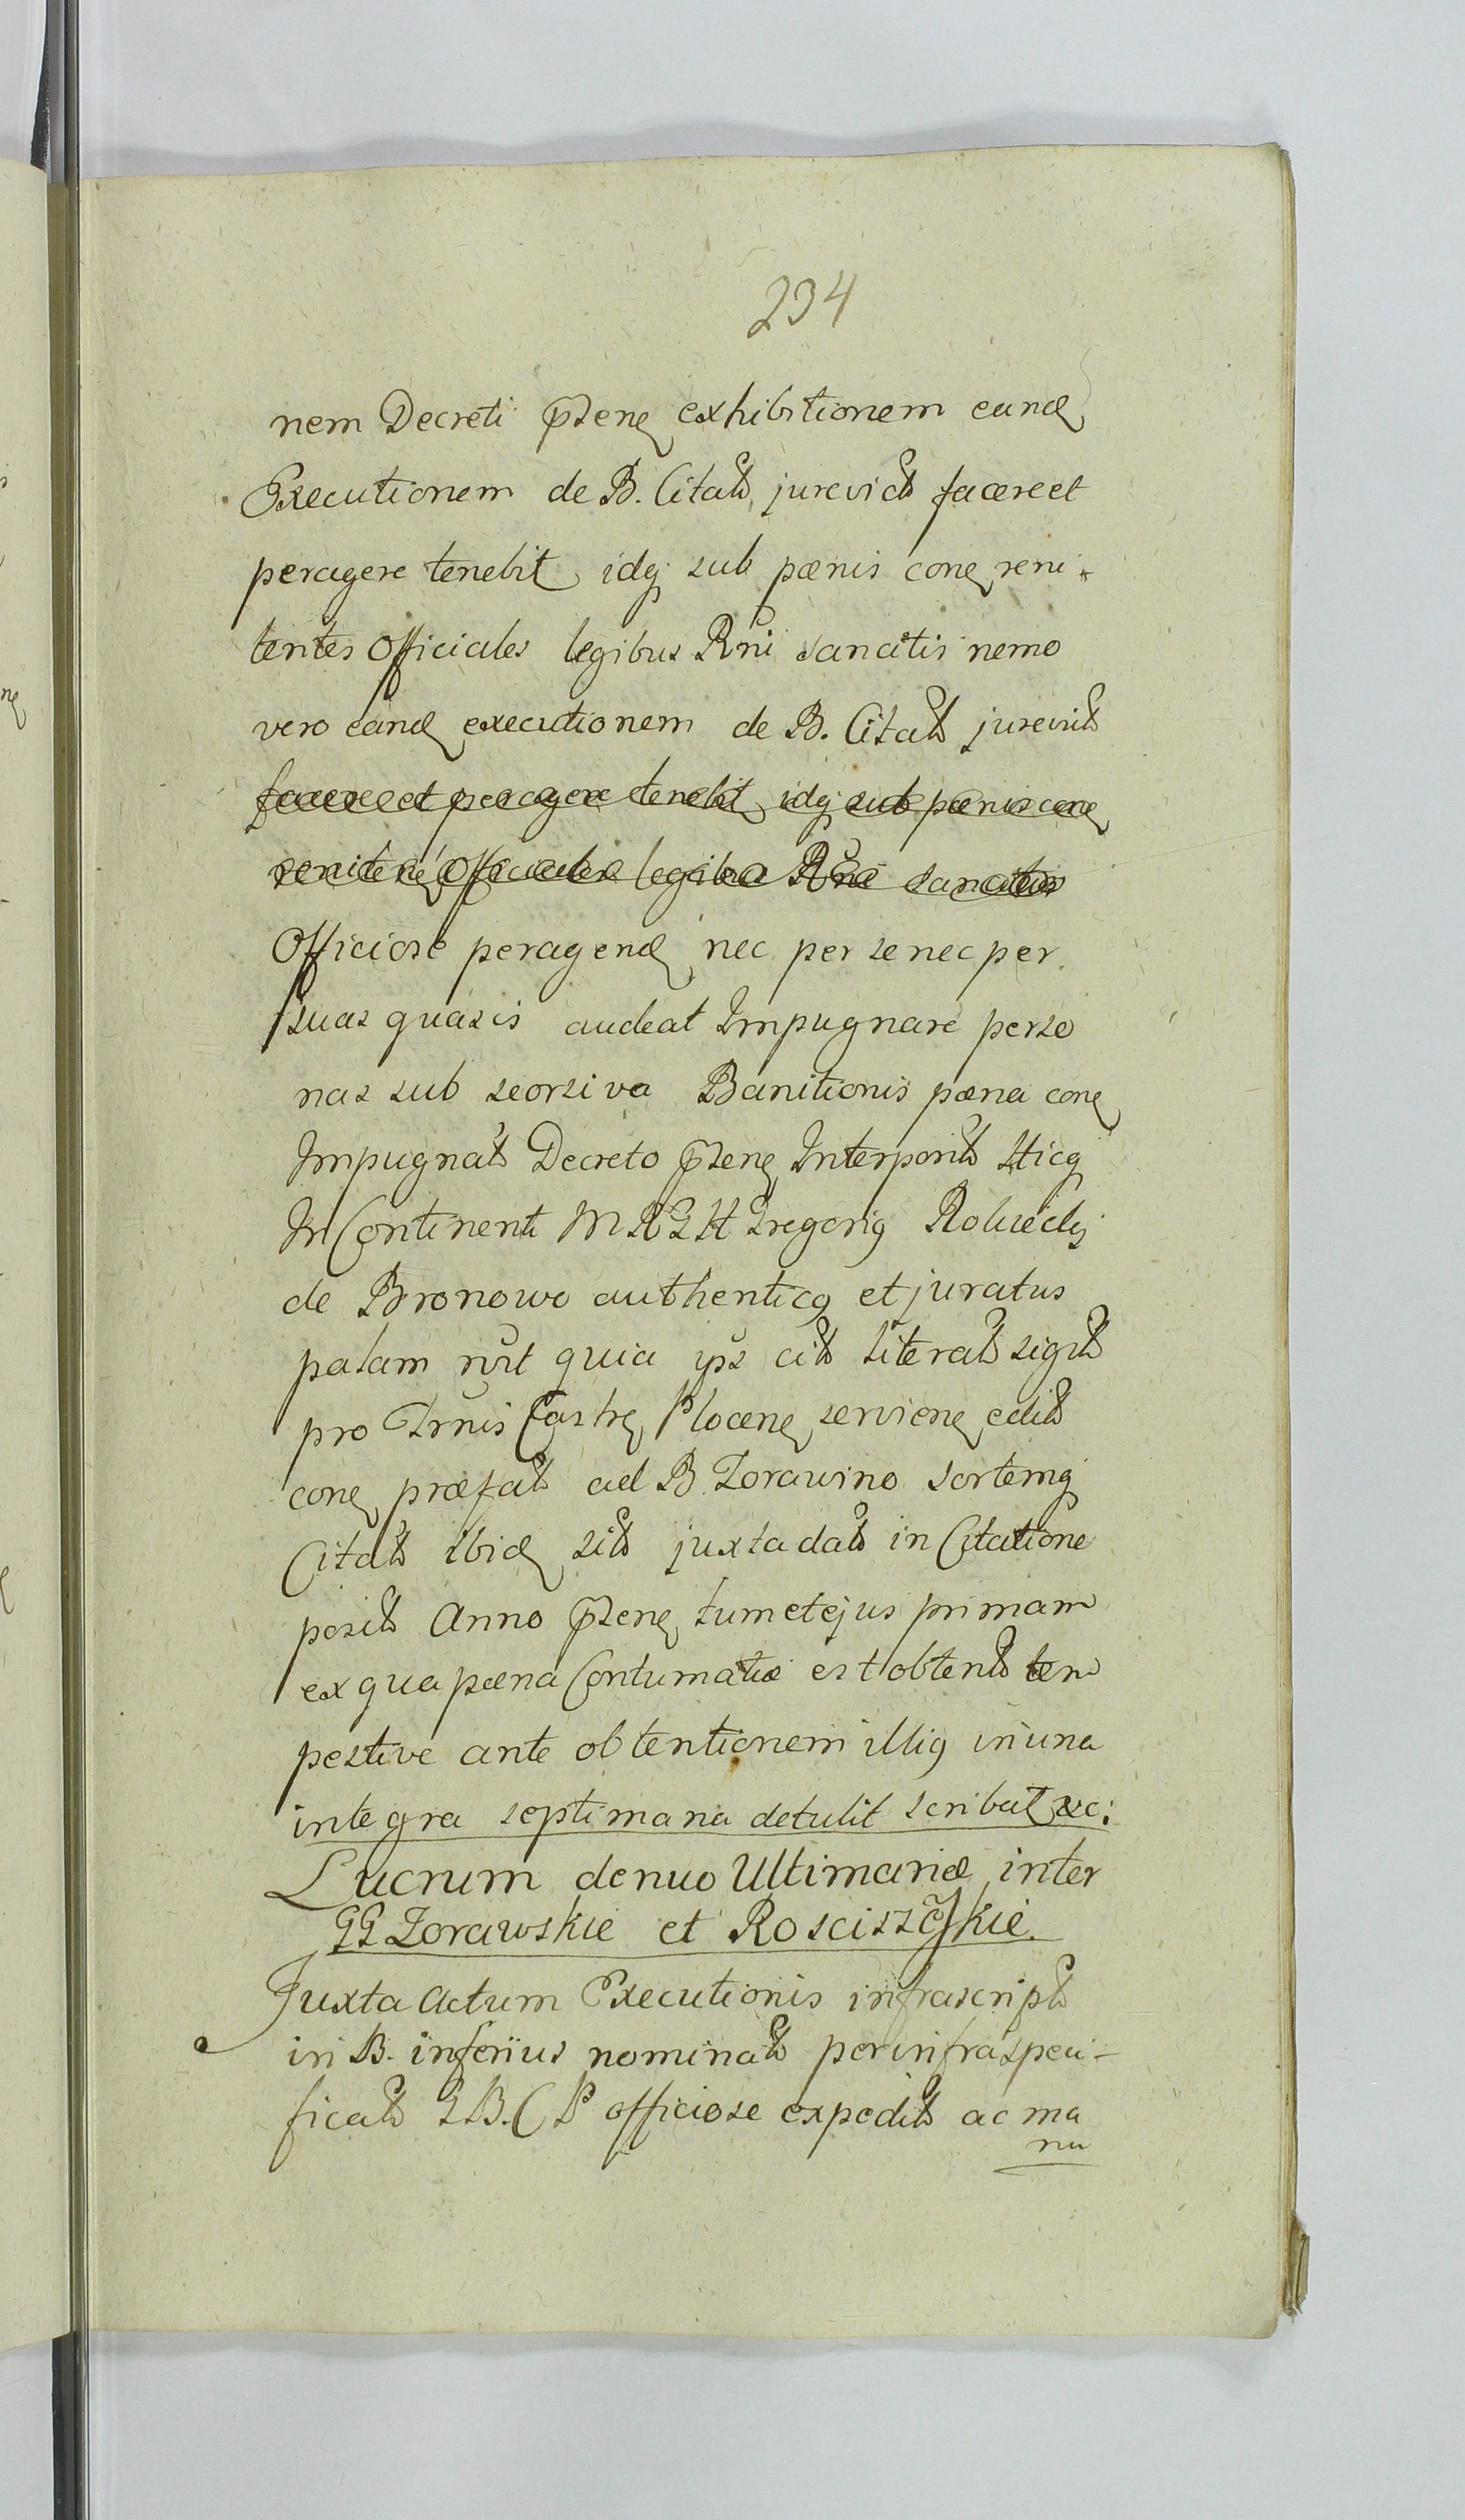 234
nem Decreti p̃sens exhibitionem eand
Executionem de B. Citat jurevict facere et
peragere tenebit idq sub pœnis cons reni-
tentes Officiales legibus Rni sancitis nemo
vero eand executionem de B. Citat jurevict
facere et peragere tenebit idq sub pœnis cons
renitens Officiales legibus Rni sancitis
Officiose peragend nec per se nec per
suas quasis audeat Impugnare perso
nas sub seorsiva Banitionis pœna cons
Impugnat Decreto p̃sens Interposit Hicq
In Continenti M R G H Gregorig
de Bronowo authenticq et juratus
palam rvt quia ips cit literat sigit
pro Trnis Castrs Plocens serviens edit
cons præfat ad B Zorawino sortemq
Citat ibid sit juxta dat in Citatione
posit Anno p̃sens tum et ejus primam
ex qua pœna Contumatiæ est obtent tem
pestive ante obtentionem illiq in una
integra septimana detulit scribat &c:
Lucrum denuo Ultimariæ inter
GG Zorawskie et Rosciszewskie.
Juxta Actum Executionis infrascript
in B. inferius nominat per infraspeci-
ficat G B. C P officiose expedit ac ma
nu